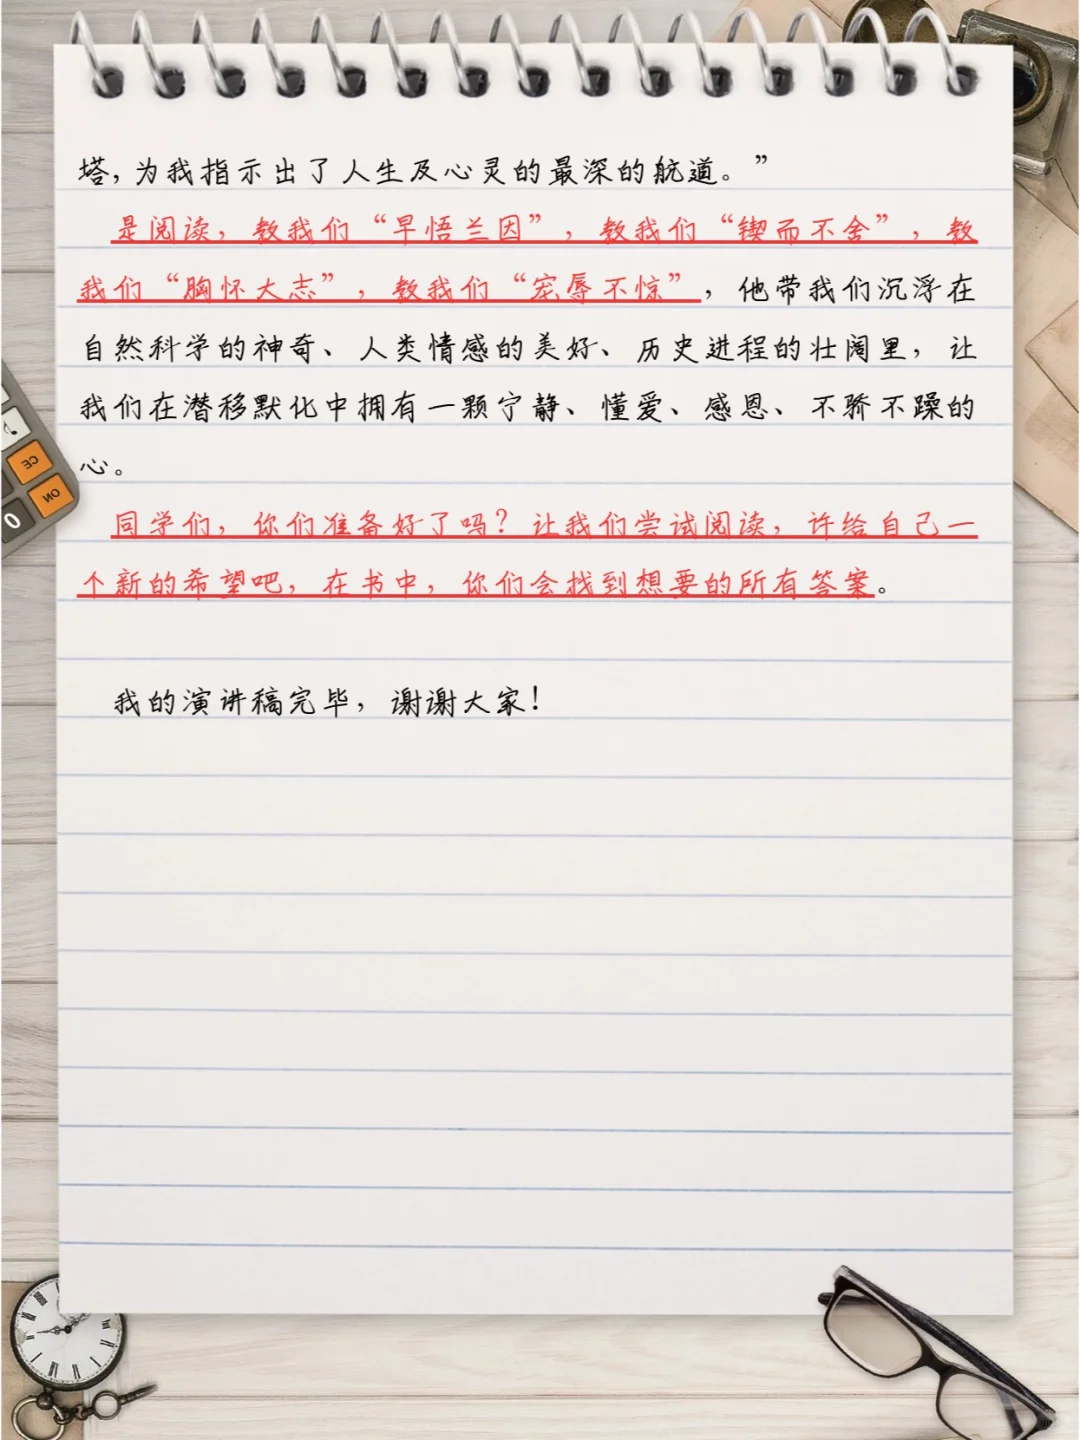 塔，为我指示出了人生及心灵的最深的航道。”
是阅读，教我们“早悟兰因”，教我们“锲而不舍”，教
我们“胸怀大志”，教我们“宠辱不惊”，他带我们沉浮在
自然科学的神奇、人类情感的美好、历史进程的壮阔里，让
我们在潜移默化中拥有一颗宁静、懂爱、感恩、不骄不躁的
心。
同学们，你们准备好了吗？让我们尝试阅读，许给自己一
个新的希望吧，在书中，你们会找到想要的所有答案。
我的演讲稿完毕，谢谢大家！
CE
ON
0